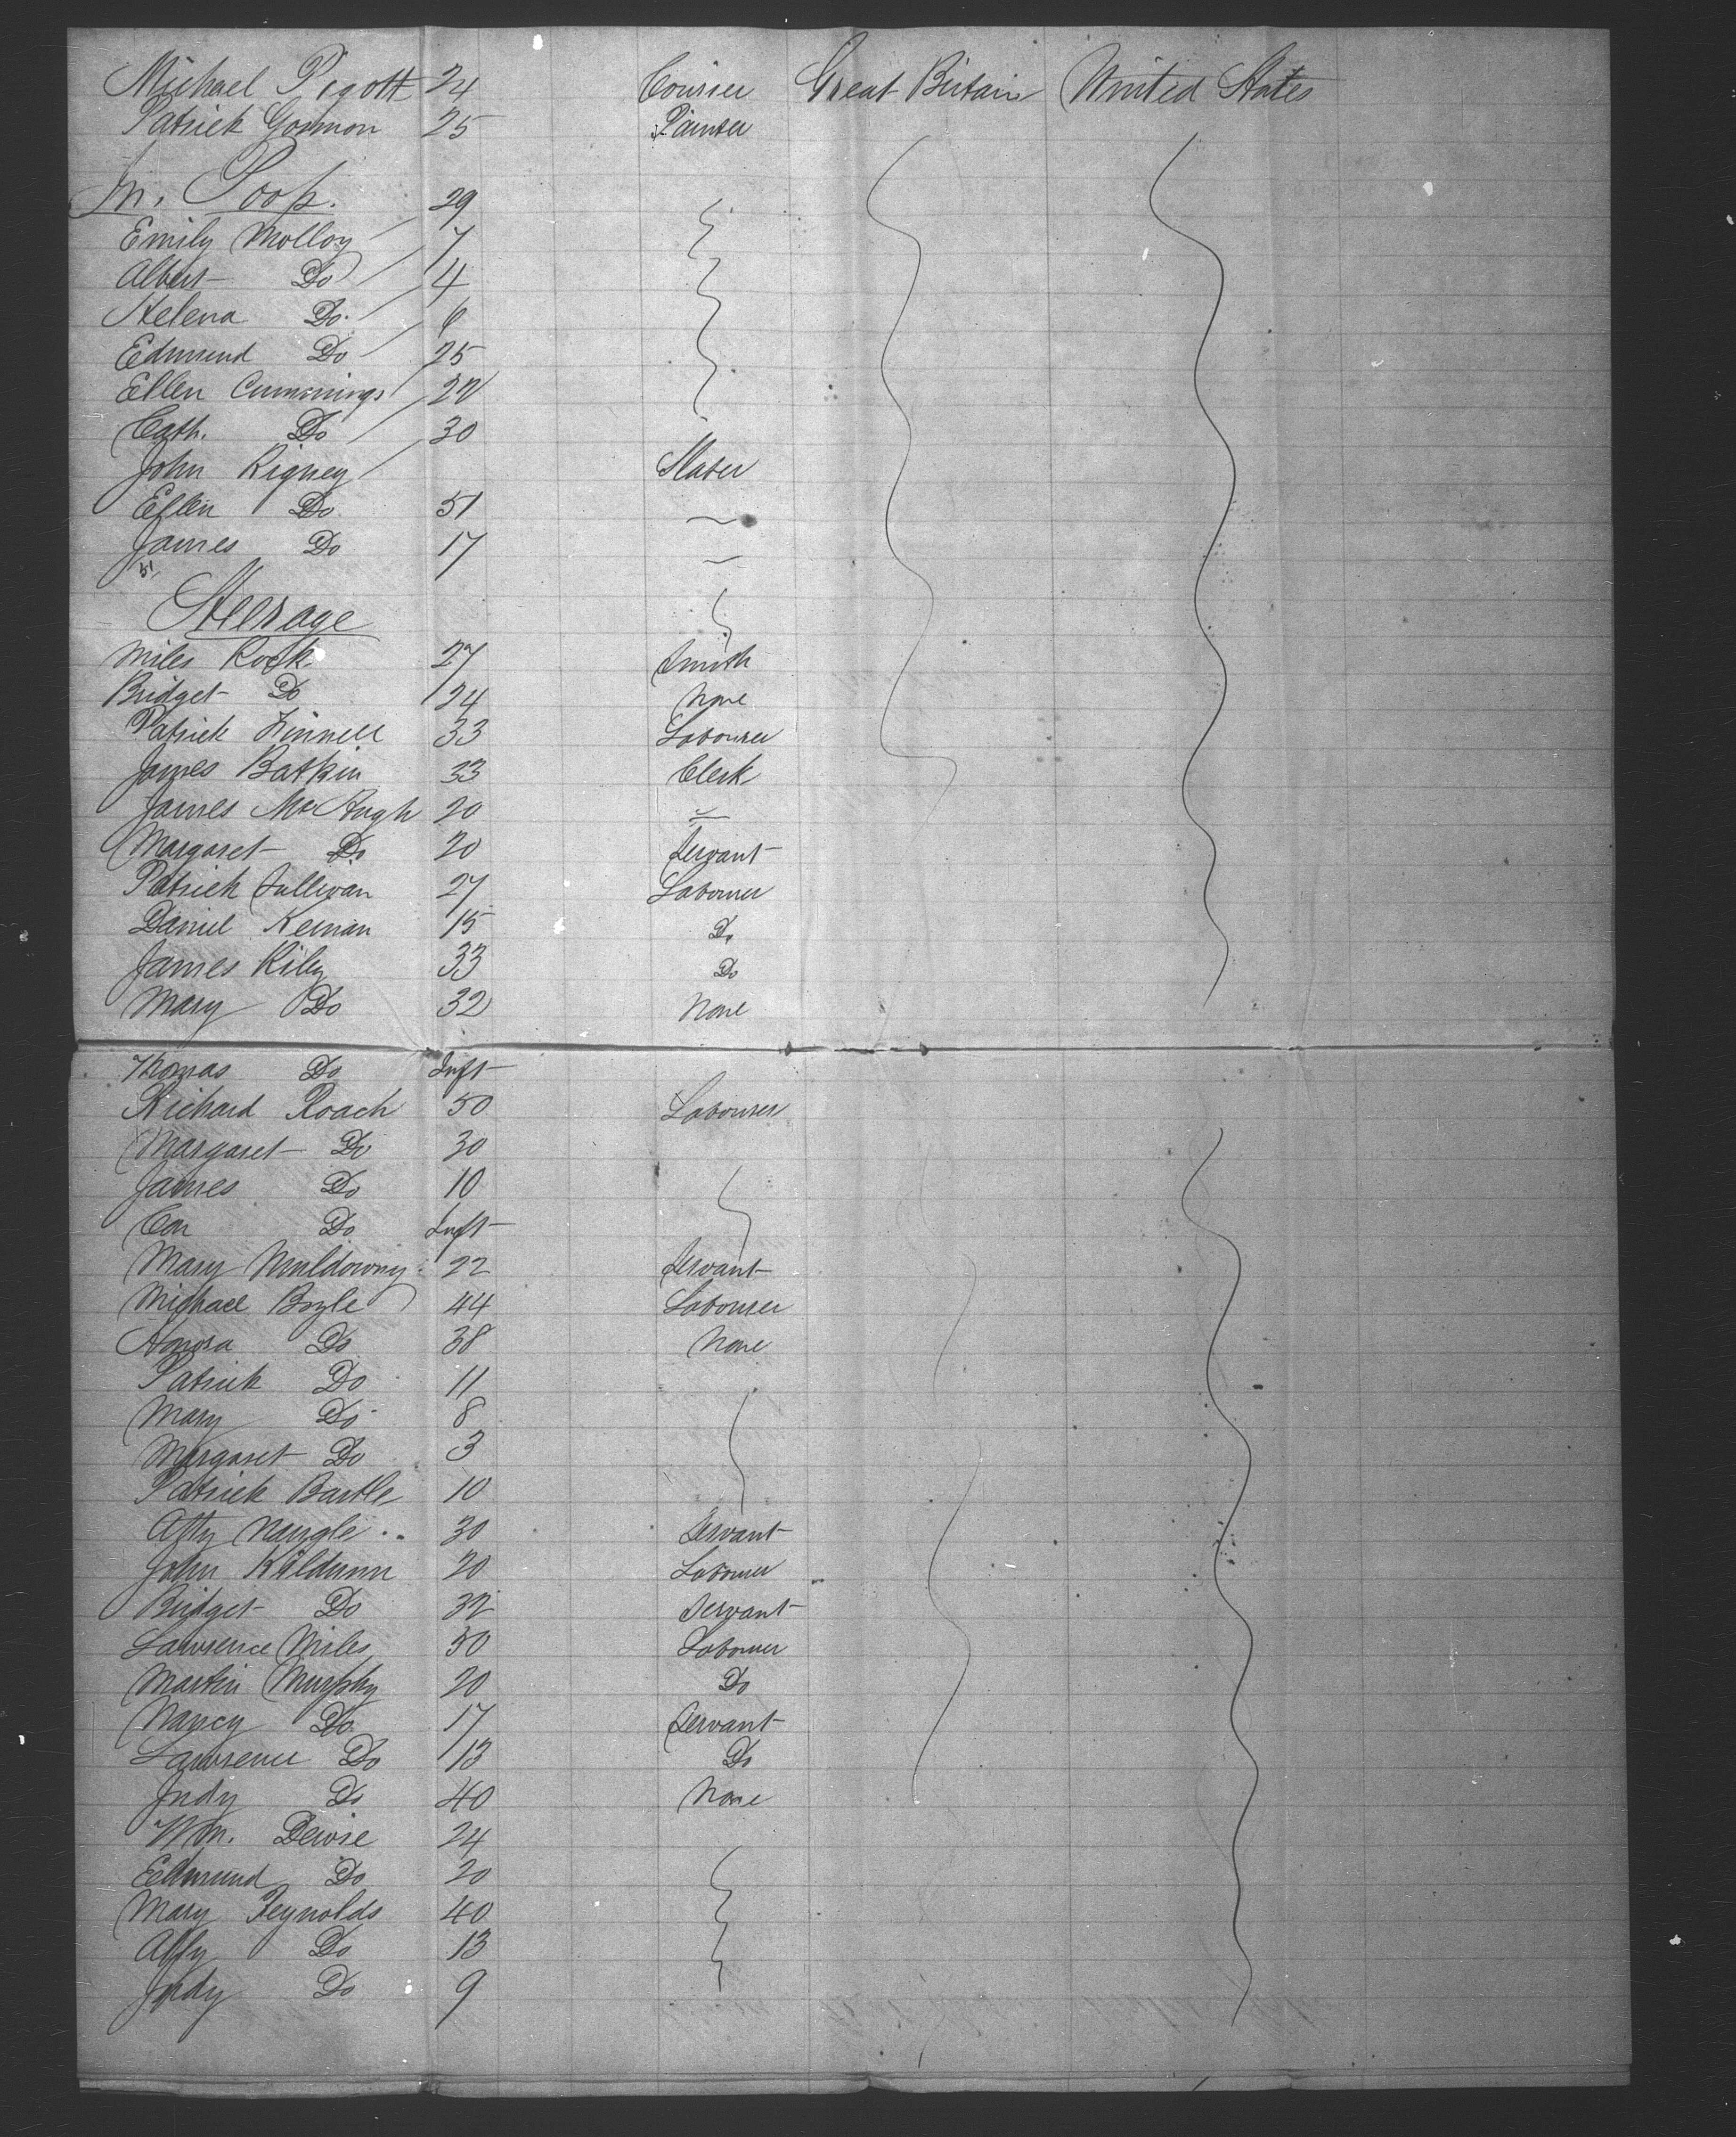 Michael Pigott 24 Courier Great Britain United States
Patrick Gormon 25 Painter
In. Poop. 29
Emily Molloy 7
Albert Do 4
Helena Do. 6
Edmund Do 25
Ellen Cummings 22
Cath. Do 30
John Rigney Slater
Ellen Do 51
James Do 17
51
Steerage
Miles Rock 27 Smith
Bridget Do 24 None
Patrick Finnell 33 Labourer
James Batkin 33 Clerk
James McHugh 20
Margaret Do 20 Servant
Patrick Sullivan 27 Labourer
Daniel Kernan 15 Do
James Riley 33 Do
Mary Do 32 None
Thomas Do Inft
Richard Roach 50 Labourer
Margaret Do 30
James Do 10
Con Do Inft
Mary Muldowny 22 Servant
Michael Boyle 44 Labourer
Honora Do 38 None
Patrick Do 11
Mary Do 8
Margaret Do 3
Patrick Bartle 10
Atty Nangle 30 Servant
John Kildunn 20 Labourer
Bridget Do 32 Servant
Lawrence Miles 50 Labourer
Martin Murphy 20 Do
Nancy Do 17 Servant
Lawrence Do 13 Do
Judy Do 40 None
Wm. Dewie 24
Edmund Do 20
Mary Reynolds 40
Do 13
Judy Do 9